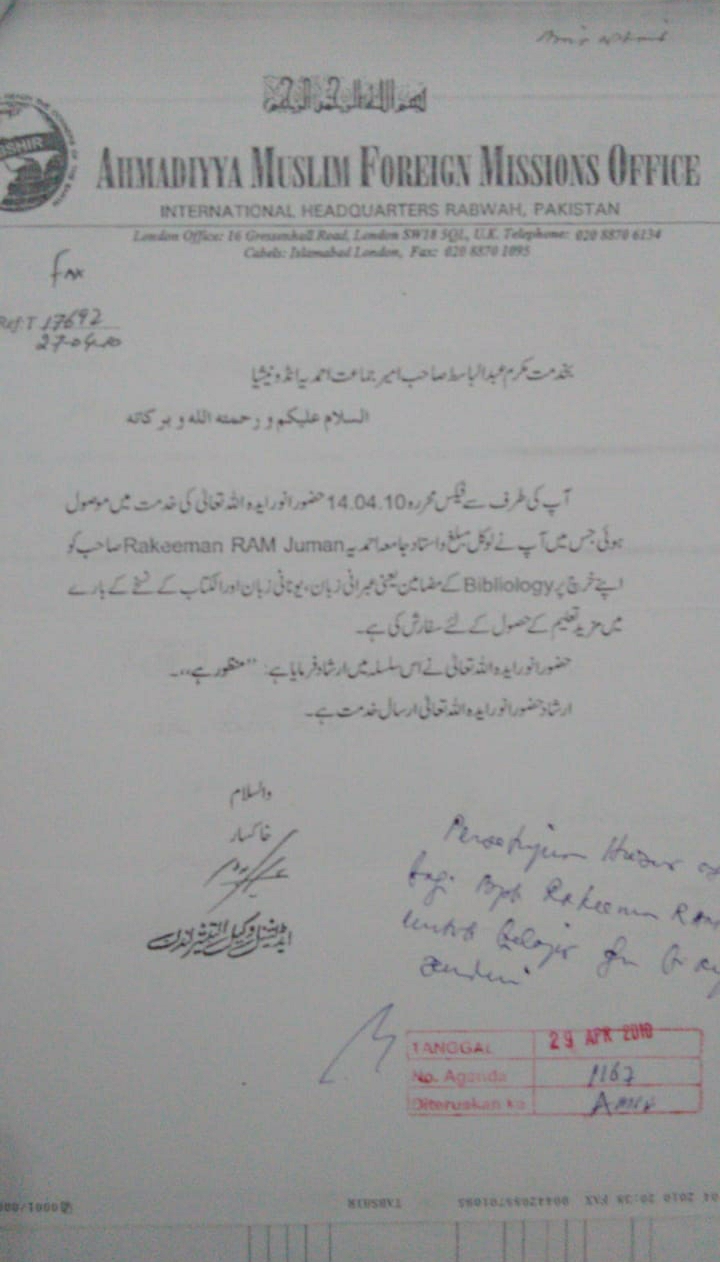 بسم اللہ الرحمن الرحیم
TABSHIR
AHMADIYYA MUSLIM FOREIGN MISSIONS OFFICE
INTERNATIONAL HEADQUARTERS RABWAH, PAKISTAN
London Office: 16 Gressenhall Road, London SW18 5QL, U.K. Telephone: 020 8870 6134
Cabels: Islamabad London, Fax: 020 8870 1095
Fax
Ref: T 17692
27-04-10
بخدمت مکرم عبدالباسط صاحب امیر جماعت احمدیہ انڈونیشیا
السلام علیکم و رحمتہ اللہ و برکاتہ
آپ کی طرف سے فیکس محررہ 14.04.10 حضور انور ایدہ اللہ تعالیٰ کی خدمت میں موصول
ہوئی جس میں آپ نے لوکل مبلغ و استاد جامعہ احمدیہ Rakeeman RAM Juman صاحب کو
اپنے خرچ پر Bibliology کے مضامین یعنی عبرانی زبان، یونانی زبان اور الکتاب کے نسخے کے بارے
میں مزید تعلیم کے حصول کے لئے سفارش کی ہے۔
حضور انور ایدہ اللہ تعالیٰ نے اس سلسلہ میں ارشاد فرمایا ہے: "منظور ہے"۔
ارشاد حضور انور ایدہ اللہ تعالیٰ ارسال خدمت ہے۔
والسلام
خاکسار
ایڈیشنل وکیل التبشیر لندن
Persetujuan Huzur
bagi Bpk Rakeeman RAM
untuk belajar
sendiri
TANGGAL 29 APR 2010
No. Agenda 1167
Diteruskan ke Amir
04 2010 20:38 FAX 00442088701095 TABSHIR